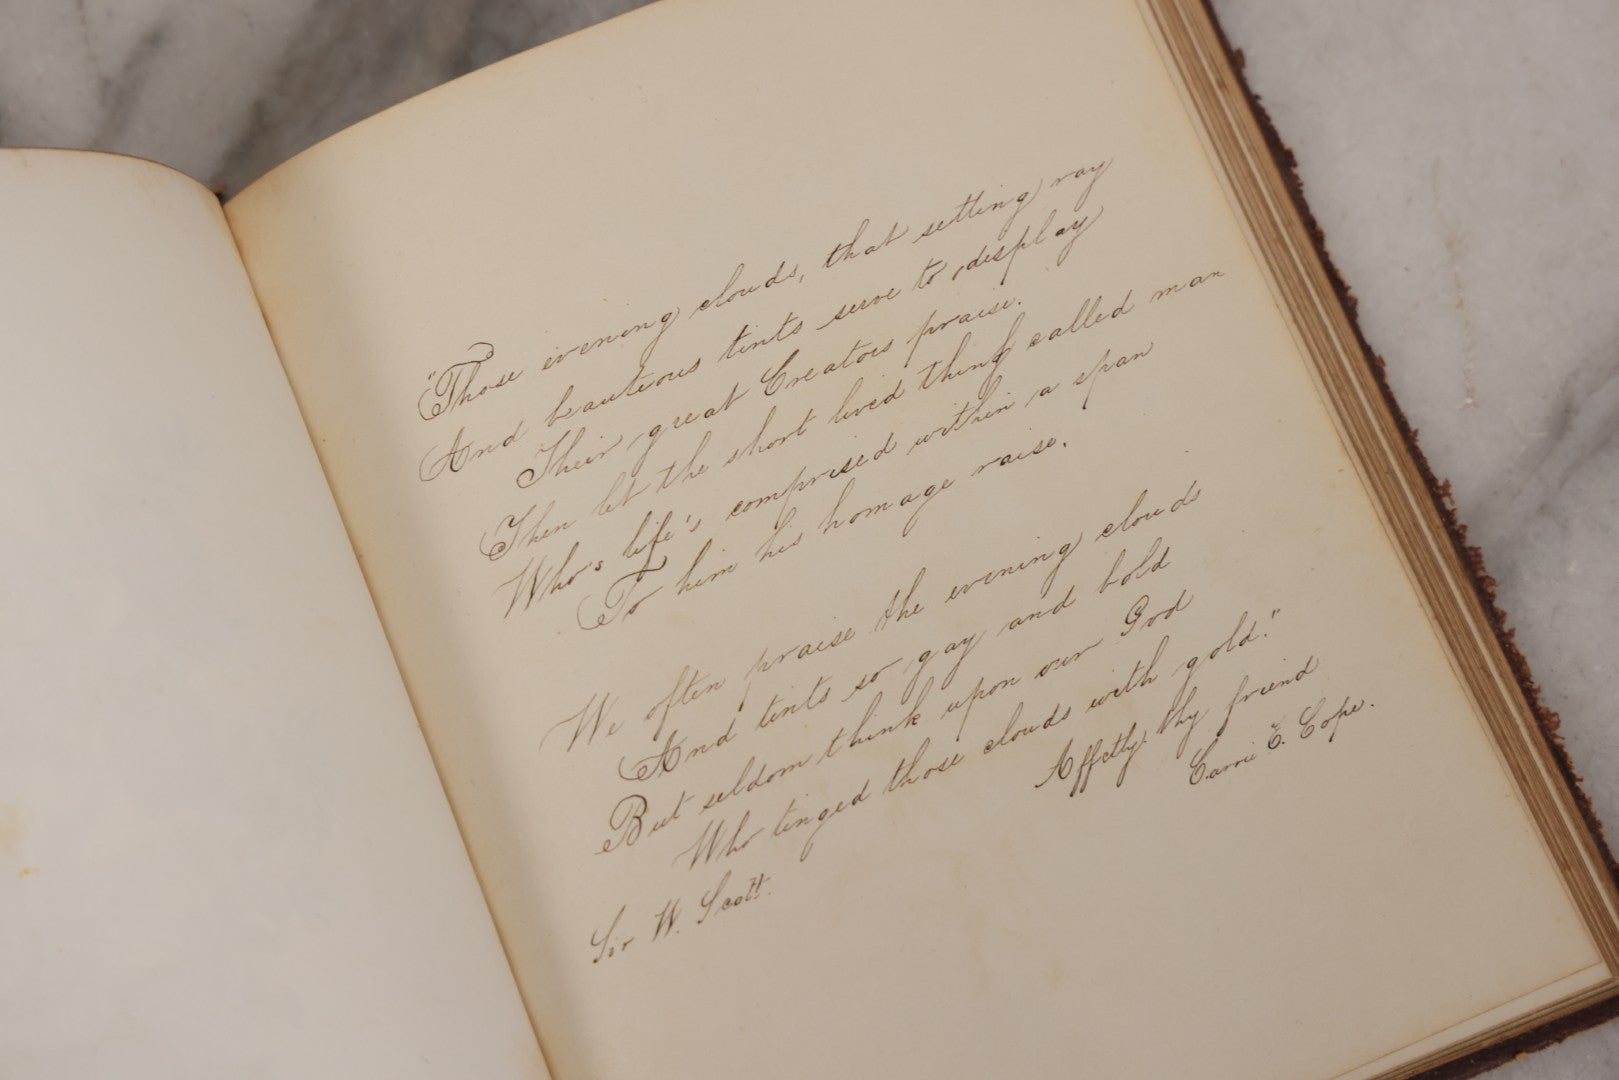 "Those evening clouds, that setting ray
And beauteous tints serve to display
Their great Creators praise.
Then let the short lived thing called man
Who's life's comprised within a span
To him his homage raise.
We often praise the evening clouds
And tints so gay and bold
But seldom think upon our God
Who tinged those clouds with gold."
Affctly, thy friend
Carrie E. Cope.
Sir W. Scott.